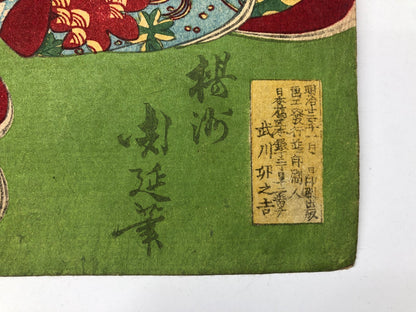 楊洲
周延筆
明治廿二年 月 日印刷出版
画工兼発行者印刷人
日本橋区
武川卯之吉